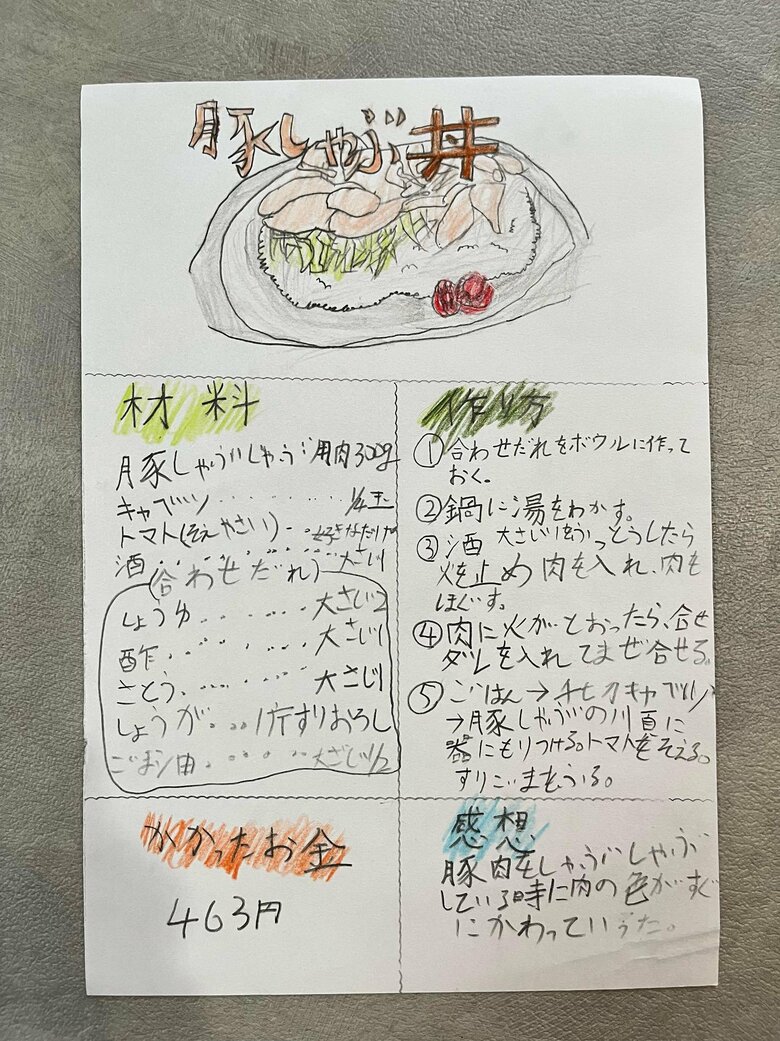 豚しゃぶ丼
材料
豚しゃぶしゃぶ用肉300g
キャベツ………1/4玉
トマト(そえやさい)…好きなだけ
酒………大さじ1
(合わせだれ)
しょうゆ………大さじ2
酢………大さじ1
さとう………大さじ1
しょうが…1片すりおろし
ごま油………大さじ1/2
作り方
①合わせだれをボウルに作って
おく。
②鍋に湯をわかす。
③酒 大さじ1をふっとうしたら
火を止め肉を入れ、肉を
ほぐす。
④肉に火がとおったら、合せ
ダレを入れてまぜ合せる。
⑤ごはん→千切りキャベツ
→豚しゃぶの順に
器にもりつける。トマトをそえる。
すりごまをふる。
かかったお金
463円
感想
豚肉をしゃぶしゃぶ
している時に肉の色がすぐ
にかわっていった。